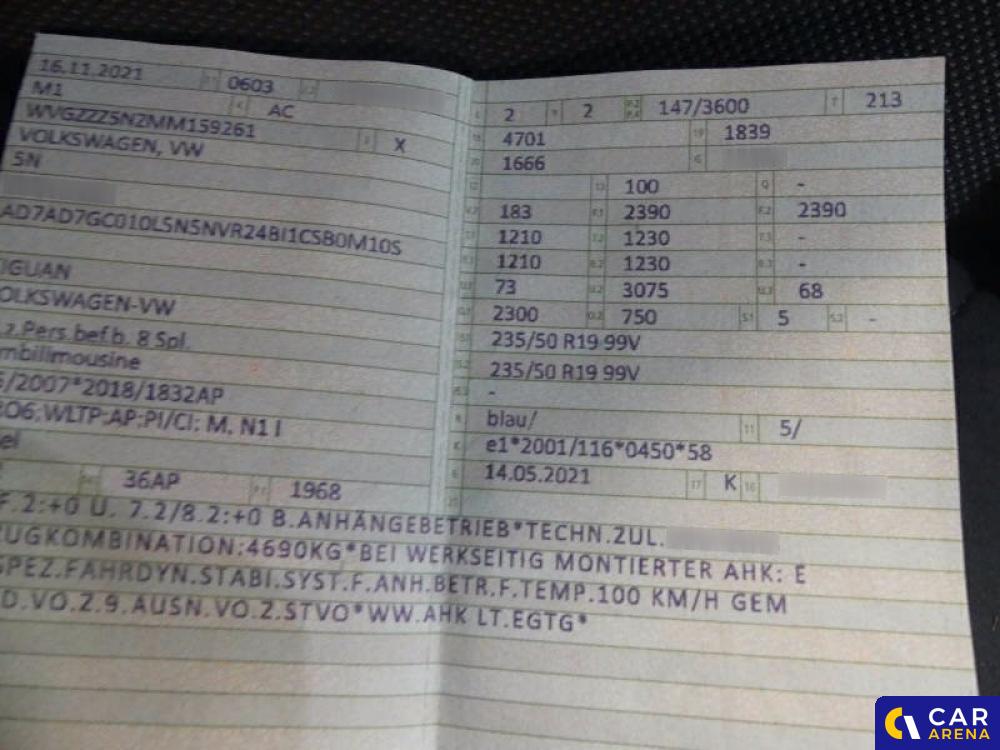 16.11.2021 0603
M1 AC
WVGZZZ5NZMM159261 X
VOLKSWAGEN, VW
5N
AD7AD7GC010L5N5NVR24BI1CSB0M10S
IGUAN
OLKSWAGEN-VW
.z.Pers.bef.b. 8 Spl.
mbilimousine
/2007*2018/1832AP
O6;WLTP;AP;PI/CI; M, N1 I
el
36AP 1968
2 2 147/3600 T 213
4701 1839
1666 G
100 Q -
183 2390 2390
1210 1230 -
1210 1230 -
73 3075 68
2300 750 5 -
235/50 R19 99V
235/50 R19 99V
-
blau/ 11 5/
e1*2001/116*0450*58
14.05.2021 17 K 16
F.2:+0 U. 7.2/8.2:+0 B.ANHÄNGEBETRIEB*TECHN.ZUL.
ZUGKOMBINATION:4690KG*BEI WERKSEITIG MONTIERTER AHK: E
SPEZ.FAHRDYN.STABI.SYST.F.ANH.BETR.F.TEMP.100 KM/H GEM
D.VO.Z.9.AUSN.VO.Z.STVO*WW.AHK LT.EGTG*
CAR
ARENA